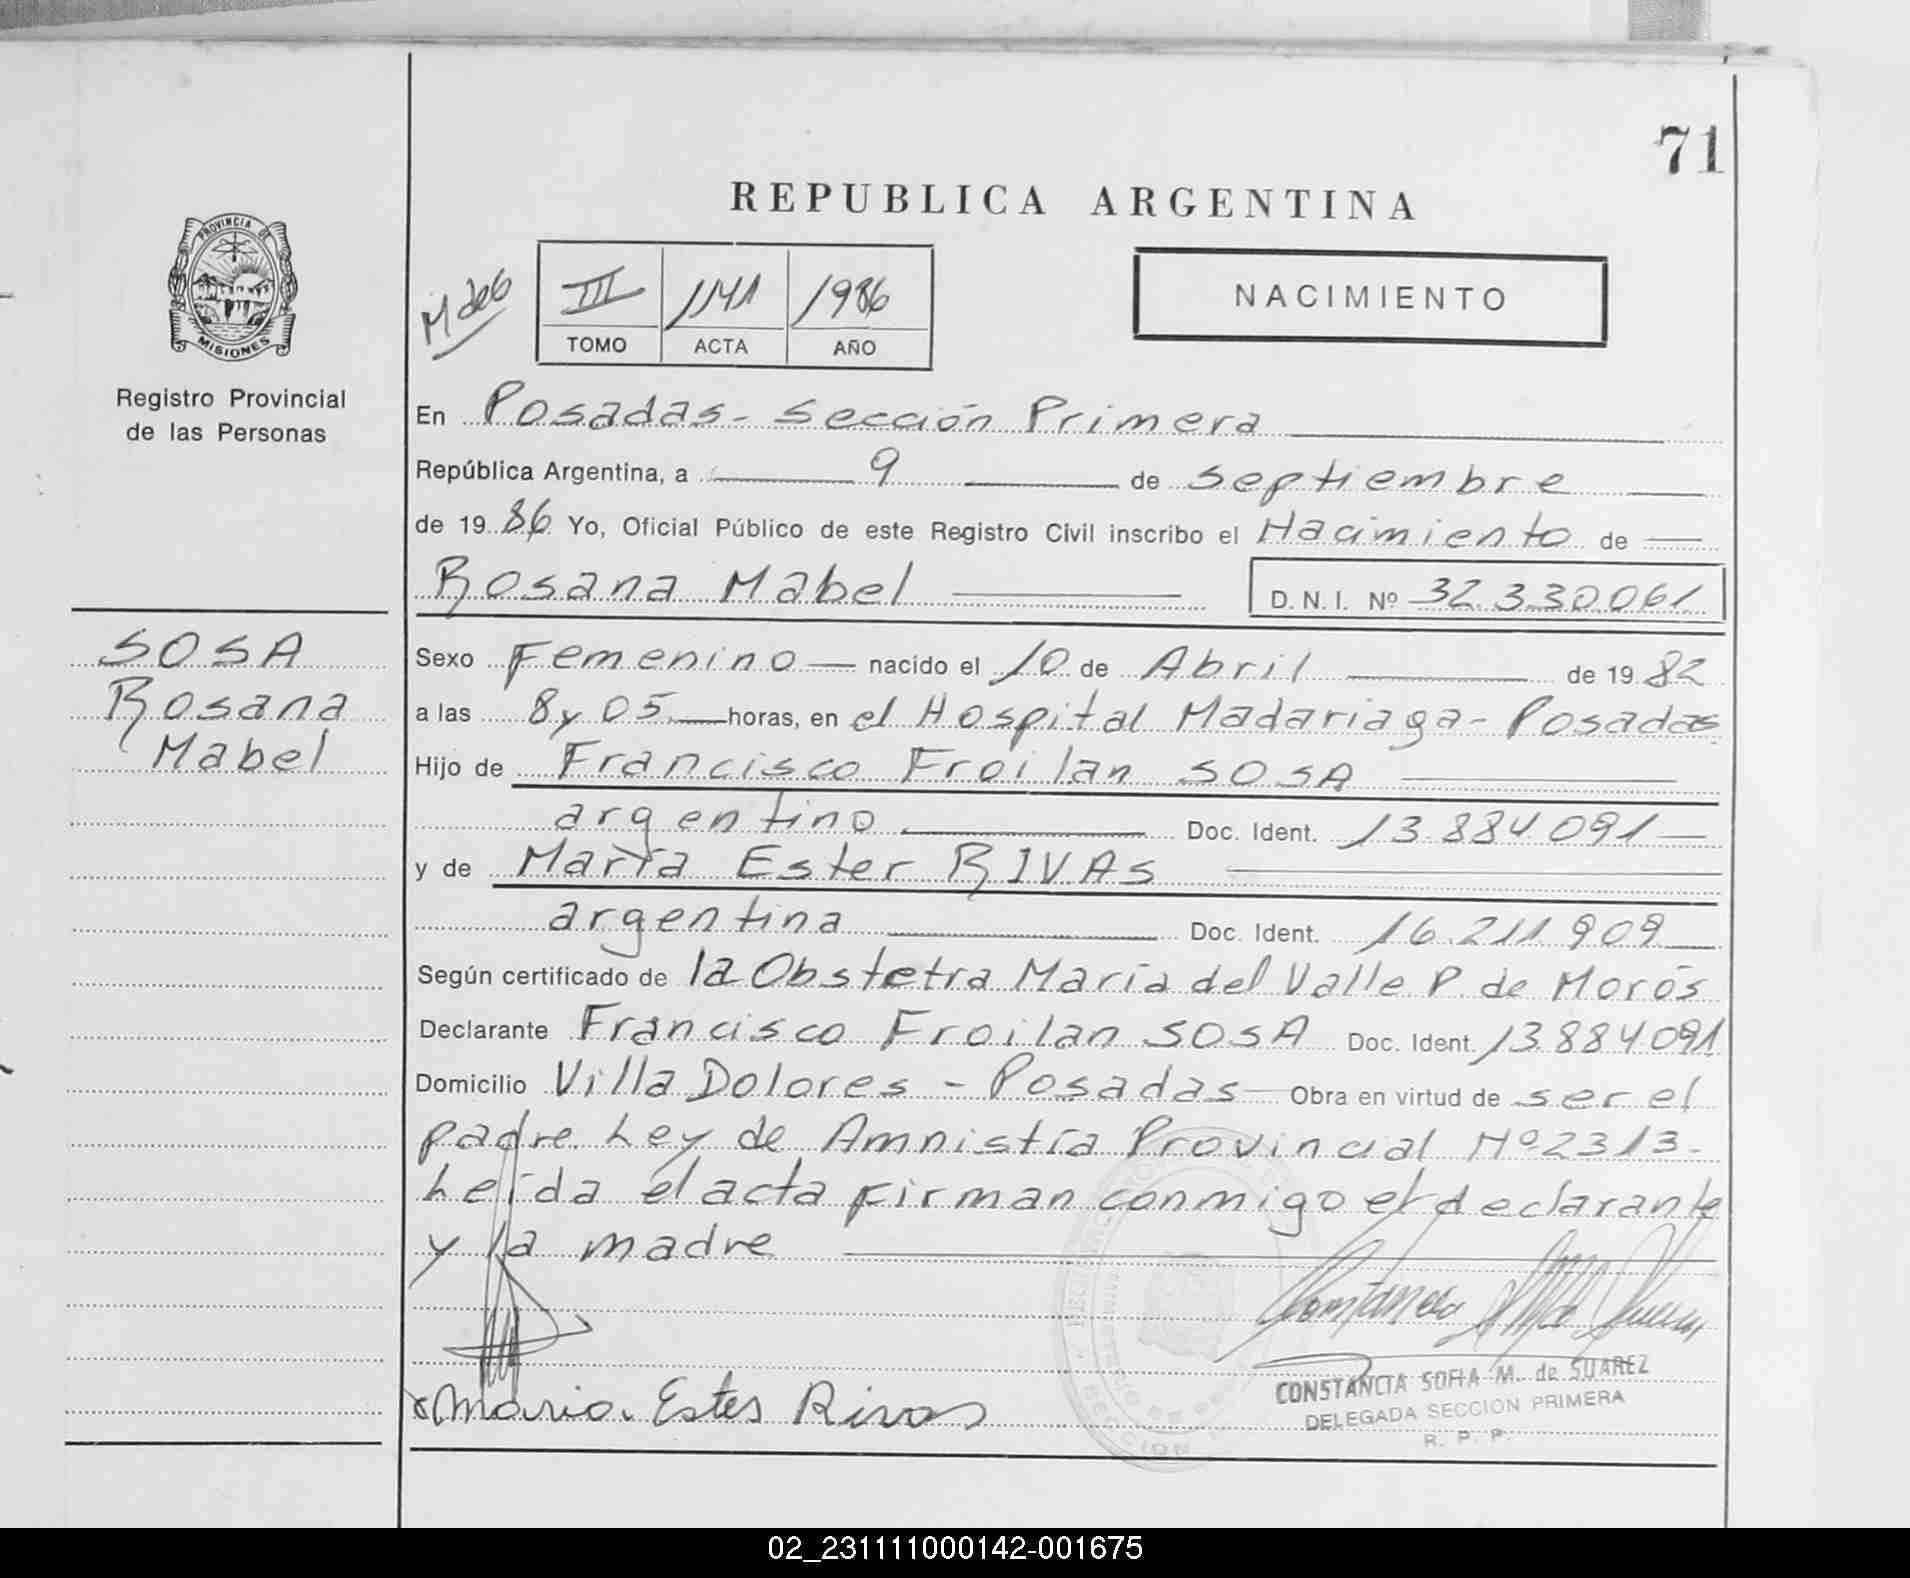 71
REPUBLICA ARGENTINA
PROVINCIA DE
MISIONES
Registro Provincial
de las Personas
III 1141 1986
TOMO ACTA AÑO
NACIMIENTO
En Posadas - Sección Primera
República Argentina, a 9 de Septiembre
de 1986 Yo, Oficial Público de este Registro Civil inscribo el Nacimiento de
Rosana Mabel D.N.I. Nº 32.330.061
SOSA
Rosana
Mabel
Sexo Femenino nacido el 10 de Abril de 1982
a las 8 y 05 horas, en el Hospital Madariaga - Posadas
Hijo de Francisco Froilan SOSA
argentino Doc. Ident. 13.884.091
y de María Ester RIVAS
argentina Doc. Ident. 16.211.909
Según certificado de la Obstetra María del Valle P. de Morós
Declarante Francisco Froilan SOSA Doc. Ident. 13.884.091
Domicilio Villa Dolores - Posadas Obra en virtud de ser el
padre. Ley de Amnistía Provincial Nº 2313 -
Leída el acta firman conmigo el declarante
y la madre
Maria Ester Rivas
CONSTANCIA SOFIA M. de SUAREZ
DELEGADA SECCION PRIMERA
R. P. P.
02_231111000142-001675